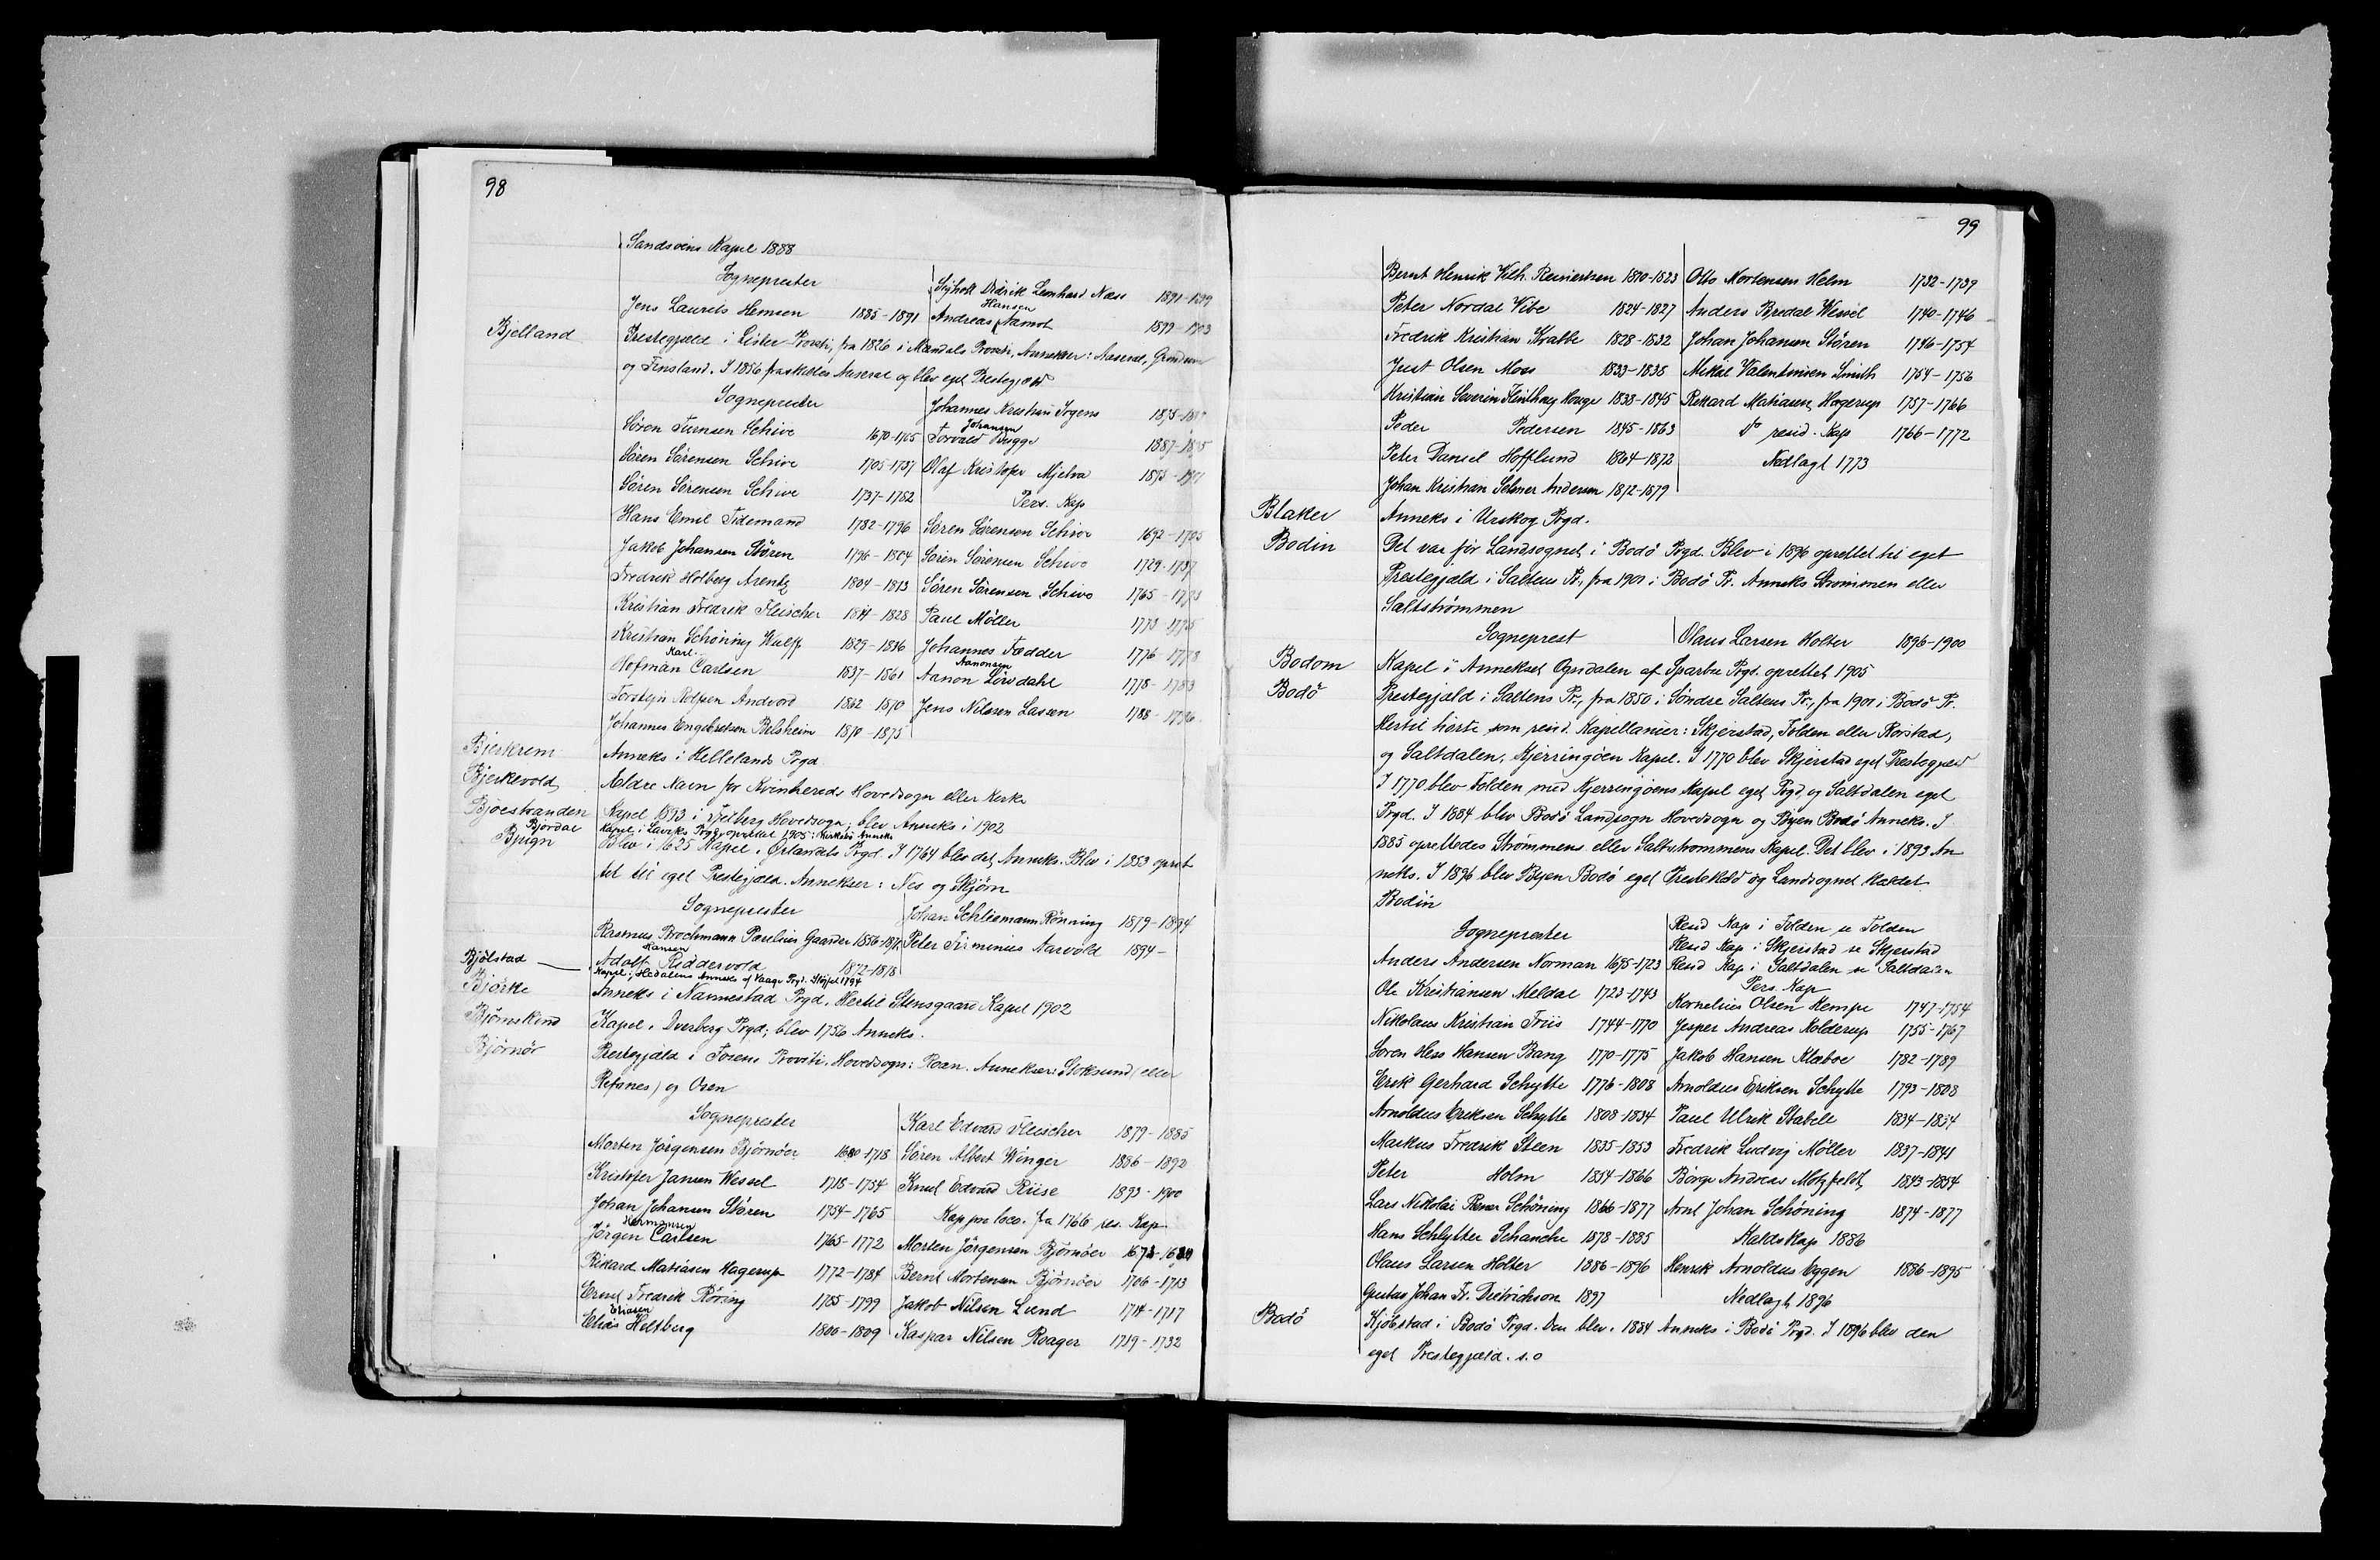 98
Sandsvins Kapel 1888
Sogneprester
Jens Laurits Hemsen 1885-1891
Didrik Leonhard Næss 1891-1899
Hansen
Andreas Aamot 1899-1903
Bjelland
Prestegjæld i Lister Provsti, fra 1826 i Mandals Provsti, Annekser: Aaseral, Grindum
og Finsland. I 1856 fraskiltes Aaseral og blev eget Prestegjæld
Sogneprester
Sören Jensen Schive 1670-1705
Sören Sörensen Schive 1705-1737
Sören Sörensen Schive 1737-1782
Hans Emil Tidemand 1782-1796
Jakob Johansen Stören 1796-1804
Fredrik Holberg Arentz 1804-1813
Kristian Fredrik Fleischer 1814-1828
Kristian Schöning Wulff 1829-1836
Karl
Hofman Carlsen 1837-1861
Torstein Rolfsen Andvord 1862-1870
Johannes Engebretsen Belsheim 1870-1875
Johannes Kristian Irgens 1875-
Johansen
Torvald Bugge 1887-1895
Olaf Kristofer Mjelva 1895-1901
Pers. Kap
Sören Sörensen Schive 1692-1705
Sören Sörensen Schive 1729-1737
Sören Sörensen Schive 1765-1773
Paul Möller 1773-1775
Johannes Fædder 1776-1778
Aanonsen
Aanon Lövdahl 1778-1783
Jens Nilssen Lassen 1788-1796
Bjerkrem
Anneks i Hellelands Prgd
Bjerkevold
Ældre Navn for Kvinherreds Hovedsogn eller Kirke
Bjoestranden
Kapel 1893 i Fjelberg Hovedsogn; blev Anneks i 1902
Björdal
Kapel i Laviks Prgd, oprettet 1905: Kirkebö Anneks
Bjugn
Blev i 1625 Kapel i Ørlandets Prgd. I 1764 blev det Anneks. Blev i 1853 opret
tet til eget Prestegjæld. Annekser: Nes og Skjörn
Sogneprester
Rasmus Brochmann Parelius Gaarder 1856-1872
Hansen
Adolf Riddervold 1872-1878
Johan Schliemann Rönning 1879-1894
Peter Firminius Aarvold 1894-
Bjölstad
Kapel i Hedalens Anneks af Vaage Prgd. Slöjfet 1794
Björke
Anneks i Nannestad Prgd. Hertil Stensgaard Kapel 1902
Björnskind
Kapel i Dverberg Prgd; blev 1756 Anneks.
Björnör
Prestegjæld i Fosens Provsti, Hovedsogn: Roan. Annekser: Stoksund (eller
Refsnes) og Osen
Sogneprester
Morten Jörgensen Björnöer 1680-1718
Kristofer Jansen Wessel 1718-1754
Johan Johansen Stören 1754-1765
Hermansen
Jörgen Carlsen 1765-1772
Rikard Matiasen Hagerup 1772-1784
Ernst Fredrik Röring 1785-1799
Eliasen
Elias Heltberg 1800-1809
Karl Edvard Fleischer 1879-1885
Sören Albert Winger 1886-1892
Knud Edvard Riise 1893-1900
Kap pro loco. fra 1766 res. Kap
Morten Jörgensen Björnöer 1673-1680
Bernt Mortensen Björnöer 1706-1713
Jakob Nilsen Lund 1714-1717
Kaspar Nilsen Roager 1719-1732
99
Bernt Henrik Vilh. Reinertsen 1810-1823
Peter Nordal Vibe 1824-1827
Fredrik Kristian Krabbe 1828-1832
Just Olsen Moss 1833-1838
Kristian Severin Hauge 1838-1845
Peder Pedersen 1845-1863
Peter Daniel Hofflund 1864-1872
Johan Kristian Selmer Andersen 1872-1879
Otto Mortensen Helm 1732-1739
Anders Bredal Wessel 1740-1746
Johan Johansen Stören 1746-1754
Mikal Valentinsen Smith 1754-1756
Rikard Matiasen Hagerup 1757-1766
do resid. Kap 1766-1772
Nedlagt 1773
Blaker
Anneks i Urskog Prgd.
Bodin
Det var för Landsognet i Bodö Prgd. Blev i 1896 oprettet til eget
Prestegjæld i Saltens Pr., fra 1901 i Bodö Pr. Anneks Strömmen eller
Saltströmmen
Sogneprest
Olaus Larsen Holter 1896-1900
Bodom
Kapel i Annekset Ogndalen af Sparbu Prgd. oprettet 1905
Bodö
Prestegjæld i Saltens Pr., fra 1850 i Söndre Saltens Pr., fra 1901 i Bodö Pr.
Hertil hörte som resid. Kapellanier: Skjerstad, Folden eller Rörstad,
og Saltdalen, Kjerringöen Kapel. I 1770 blev Skjerstad eget Prestegjæld
I 1770 blev Folden med Kjerringöens Kapel eget Prgd, og Saltdalen eget
Prgd. I 1884 blev Bodö Landsogn Hovedsogn og Byen Bodö Anneks. I
1885 oprettedes Strömmens eller Saltströmmens Kapel. Det blev i 1893 An
neks. I 1896 blev Byen Bodö eget Prestekald og Landsognet kaldet
Bodin
Sogneprester
Anders Andersen Norman 1675-1723
Ole Kristiansen Meldal 1723-1743
Nikolaus Kristian Friis 1744-1770
Sören Hess Hansen Bang 1770-1775
Erik Gerhard Schytte 1776-1808
Arnoldus Eriksen Schytte 1808-1834
Markus Fredrik Steen 1835-1853
Peter Holm 1854-1866
Lars Nikolai Schöning 1866-1877
Hans Schlytter Schanche 1878-1885
Olaus Larsen Holter 1886-1896
Gustav Johan Fr. Dietrichson 1897
Resid Kap i Folden se Folden
Resid Kap i Skjerstad se Skjerstad
Resid Kap i Saltdalen se Saltdalen
Pers. Kap
Kornelius Olsen Kempe 1747-1754
Jesper Andreas Kolderup 1755-1767
Jakob Hansen Klæboe 1782-1789
Arnoldus Eriksen Schytte 1793-1808
Paul Ulrik Stabell 1834-1834
Fredrik Ludvig Möller 1837-1841
Börge Andreas Motzfeldt 1843-1854
Arnt Johan Schöning 1874-1877
Kaldskap 1886
Henrik Arnoldus Eggen 1886-1895
Nedlagt 1896
Bodö
Kjöbstad i Bodö Prgd. Den blev i 1884 Anneks i Bodö Prgd. I 1896 blev den
eget Prestegjæld. s.o